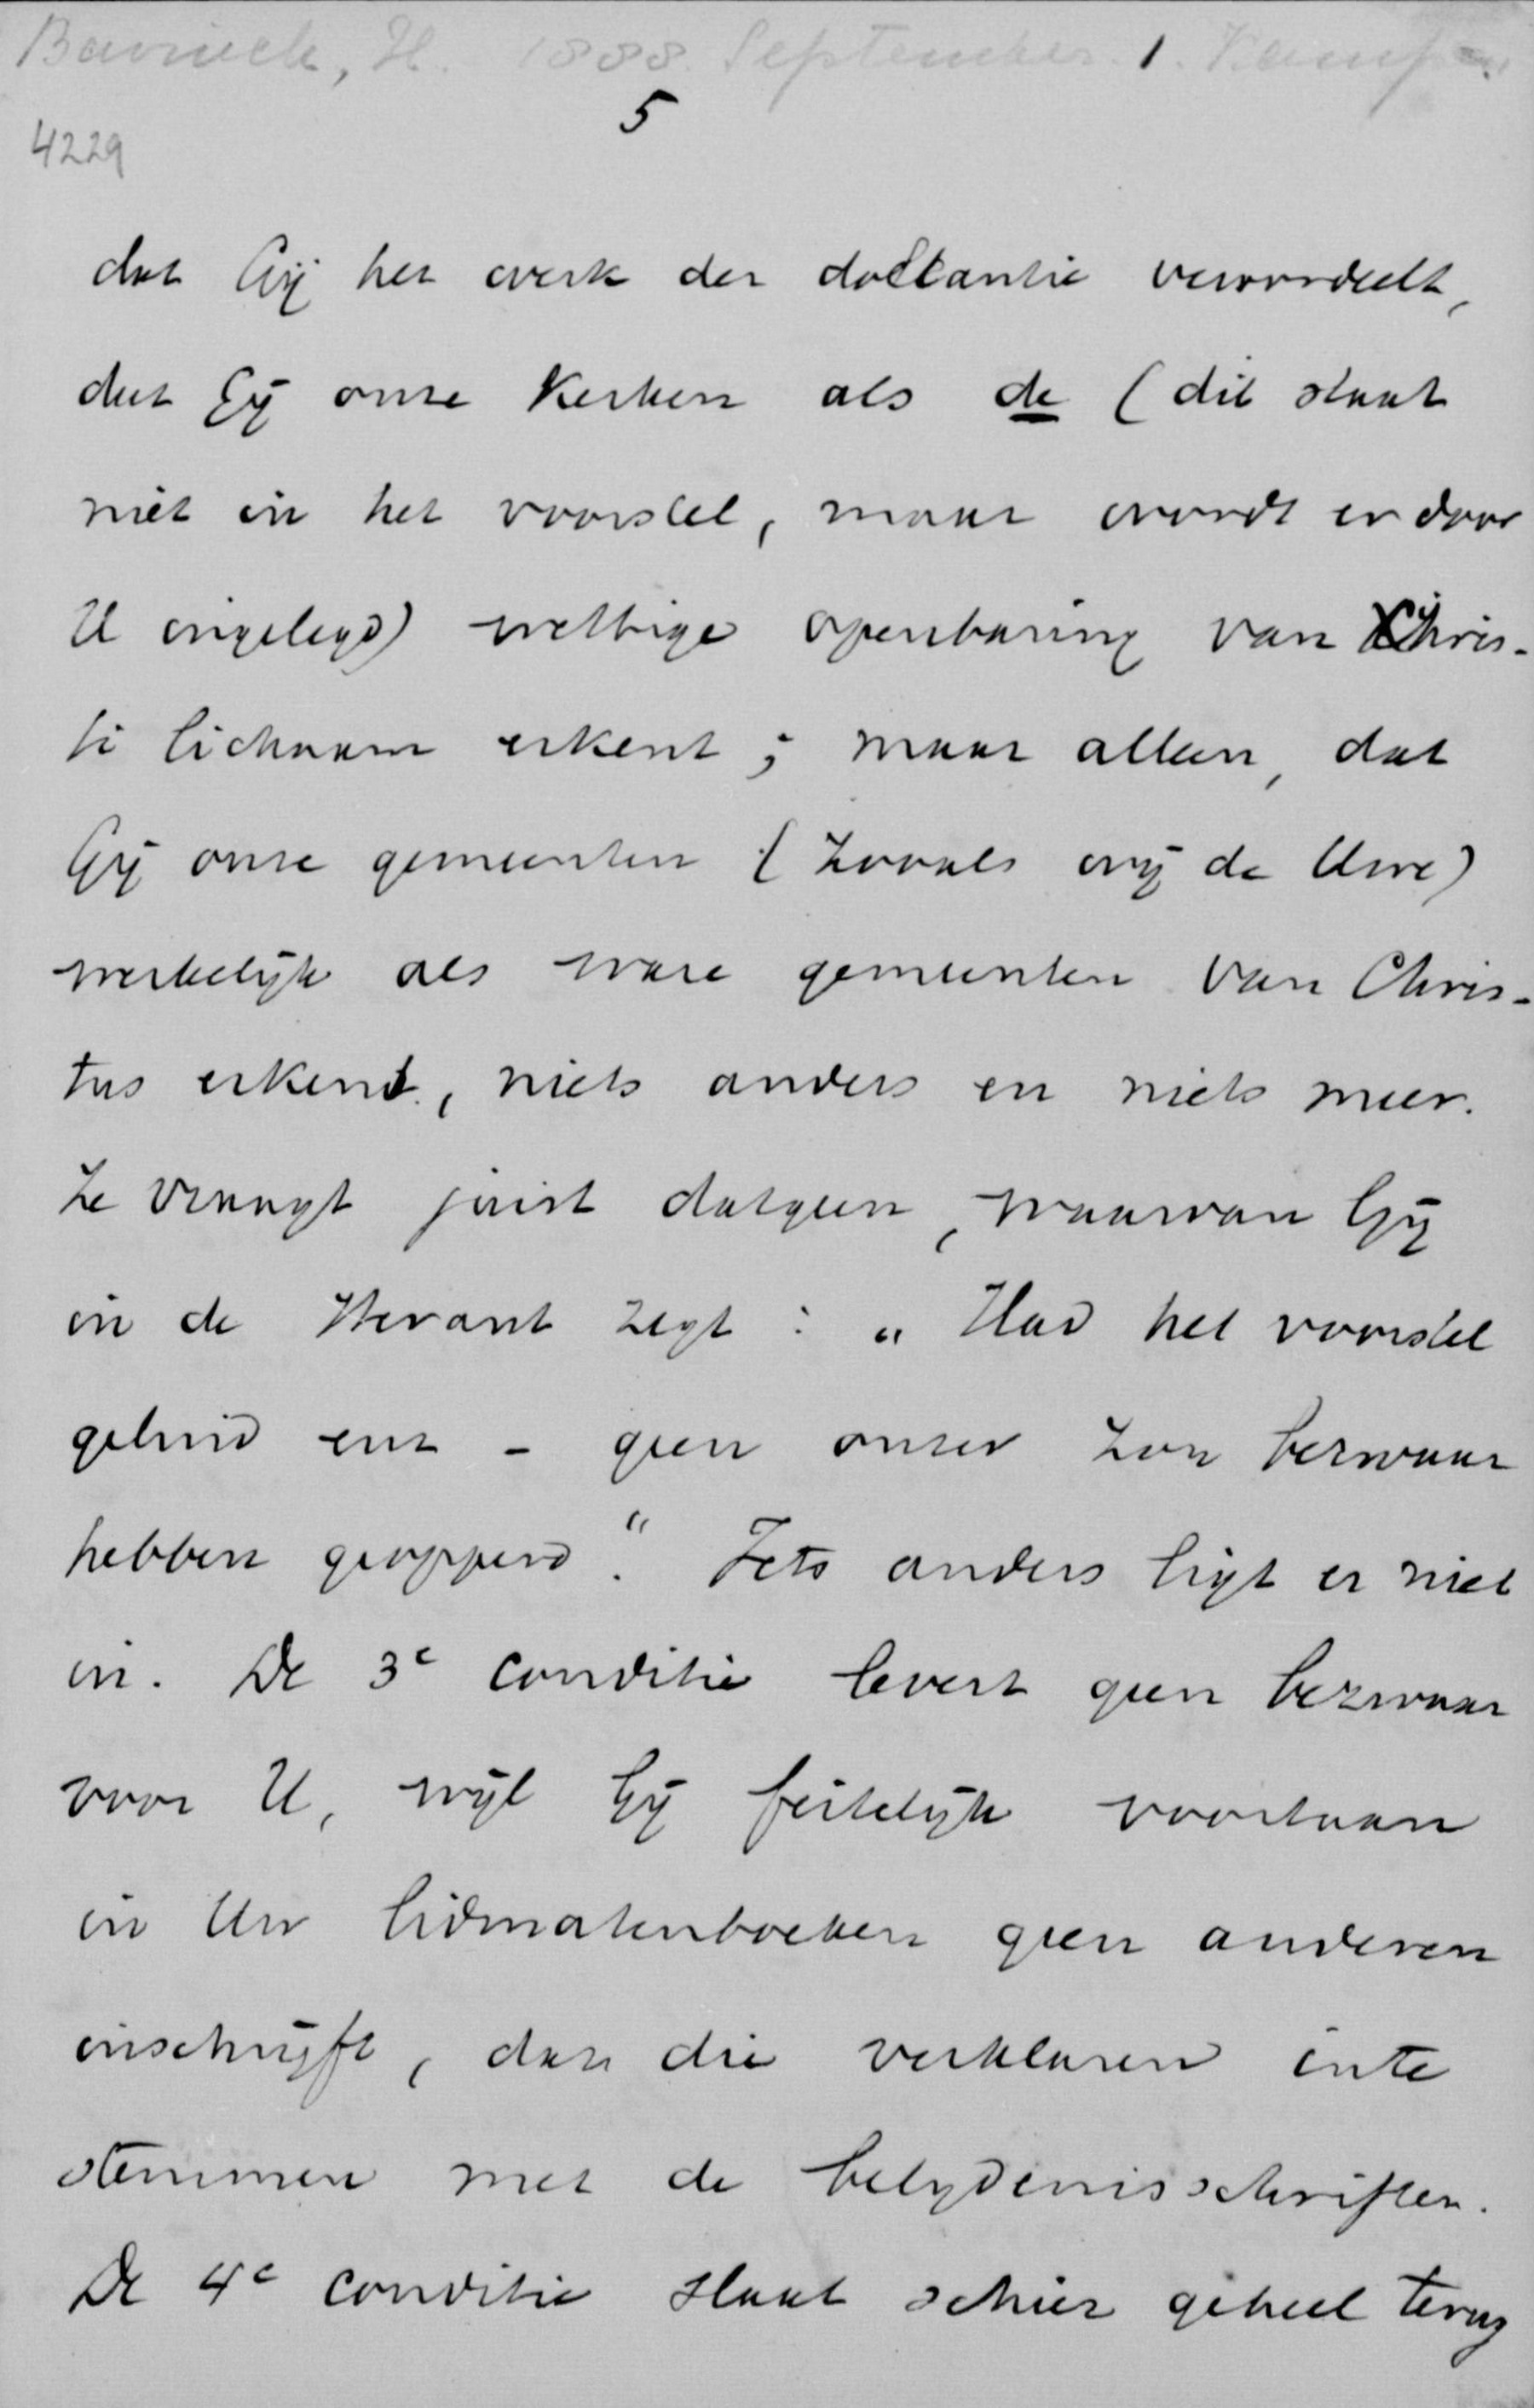 Bavinck, H. 1888. September 1. Kampen
5
4229
dat Gij het werk der doleantie veroordeelt,
dat Gij onze Kerken als de (dit staat
niet in het voorstel, maar wordt er door
U ingelegd) wettige openbaring van Chris-
ti lichaam erkent; maar alleen, dat
Gij onze gemeenten (zooals wij de Uwe)
werkelijk als ware gemeenten van Chris-
tus erkent, niets anders en niets meer.
Ze vraagt juist datgeen, waarvan Gij
in de Heraut zegt: „Had het voorstel
geluid enz - geen onzer zou bezwaar
hebben geopperd“. Iets anders ligt er niet
in. De 3e conditie levert geen bezwaar
voor U, wijl Gij feitelijk voortaan
in Uw lidmatenboeken geen anderen
inschrijft, dan die verklaren inte
stemmen met de belijdenisschriften.
De 4e conditie slaat schier geheel terug